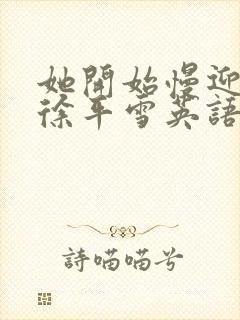 她開始慢迎
徐平雪英語
詩喵喵兮